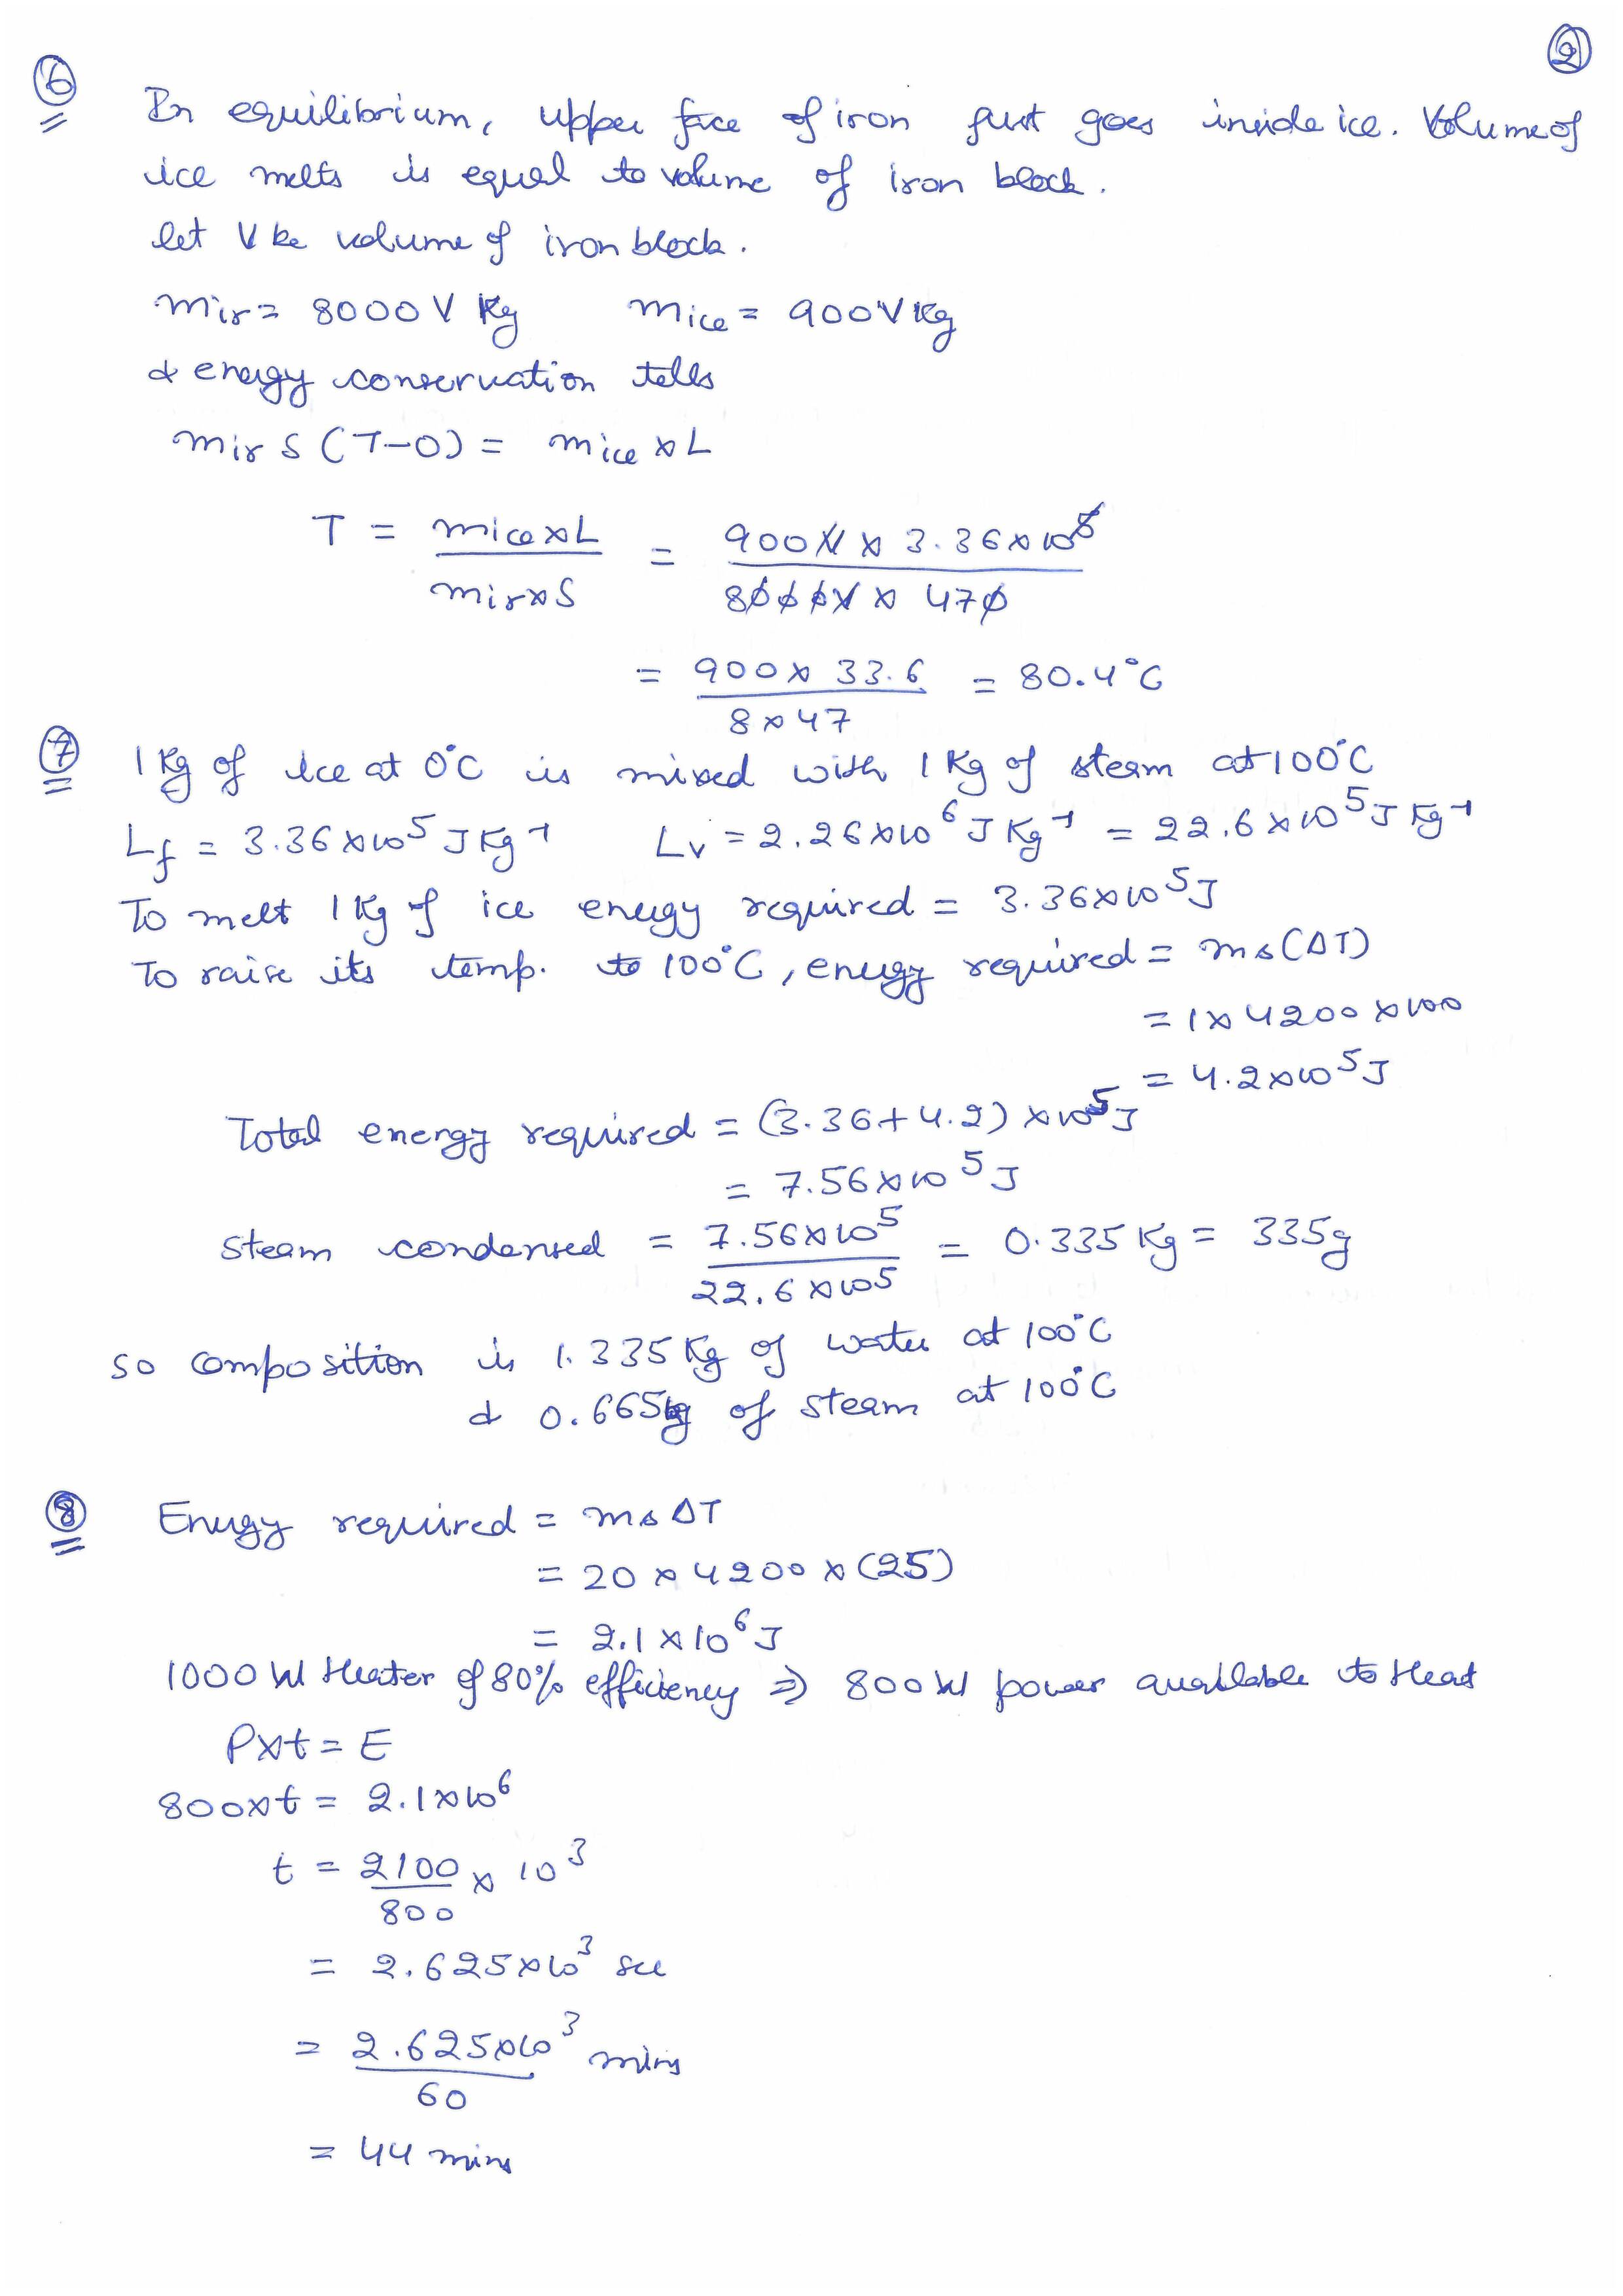 2
6 In equilibrium, upper face of iron just goes inside ice. Volume of
ice melts is equal to volume of iron block.
let V be volume of iron block.
mir = 8000 V Kg mice = 900 V Kg
& energy conservation tells
mir S (T-0) = mice × L
T = mice × L / mir × S = 900 V × 3.36 × 10^5 / 8000 V × 470
= 900 × 33.6 / 8 × 47 = 80.4°C
7 1 Kg of Ice at 0°C is mixed with 1 Kg of steam at 100°C
Lf = 3.36 × 10^5 J Kg^-1 Lv = 2.26 × 10^6 J Kg^-1 = 22.6 × 10^5 J Kg^-1
To melt 1 Kg of ice energy required = 3.36 × 10^5 J
To raise its temp. to 100°C, energy required = ms(ΔT)
= 1 × 4200 × 100
= 4.2 × 10^5 J
Total energy required = (3.36 + 4.2) × 10^5 J
= 7.56 × 10^5 J
Steam condensed = 7.56 × 10^5 / 22.6 × 10^5 = 0.335 Kg = 335g
so composition is 1.335 Kg of water at 100°C
& 0.665kg of steam at 100°C
8 Energy required = ms ΔT
= 20 × 4200 × (25)
= 2.1 × 10^6 J
1000 W Heater of 80% efficiency ⇒ 800 W power available to Heat
P × t = E
800 × t = 2.1 × 10^6
t = 2100 / 800 × 10^3
= 2.625 × 10^3 sec
= 2.625 × 10^3 / 60 mins
= 44 mins